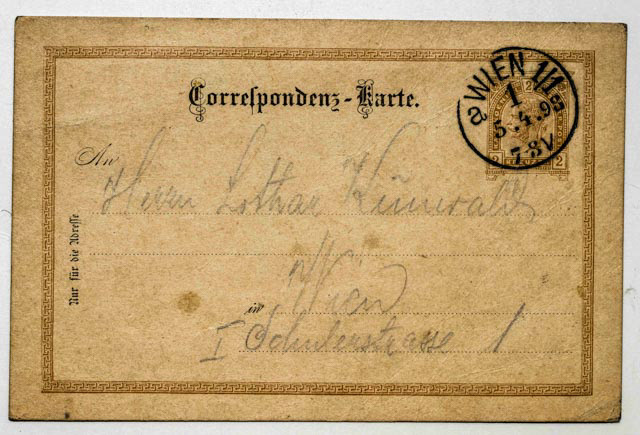 Correspondenz-Karte.
WIEN 1/1
1
5.4.98
7-8V
2 2
An
Herrn Lothar Kunwald
Wien
in
I Schulerstrasse 1
Nur für die Adresse